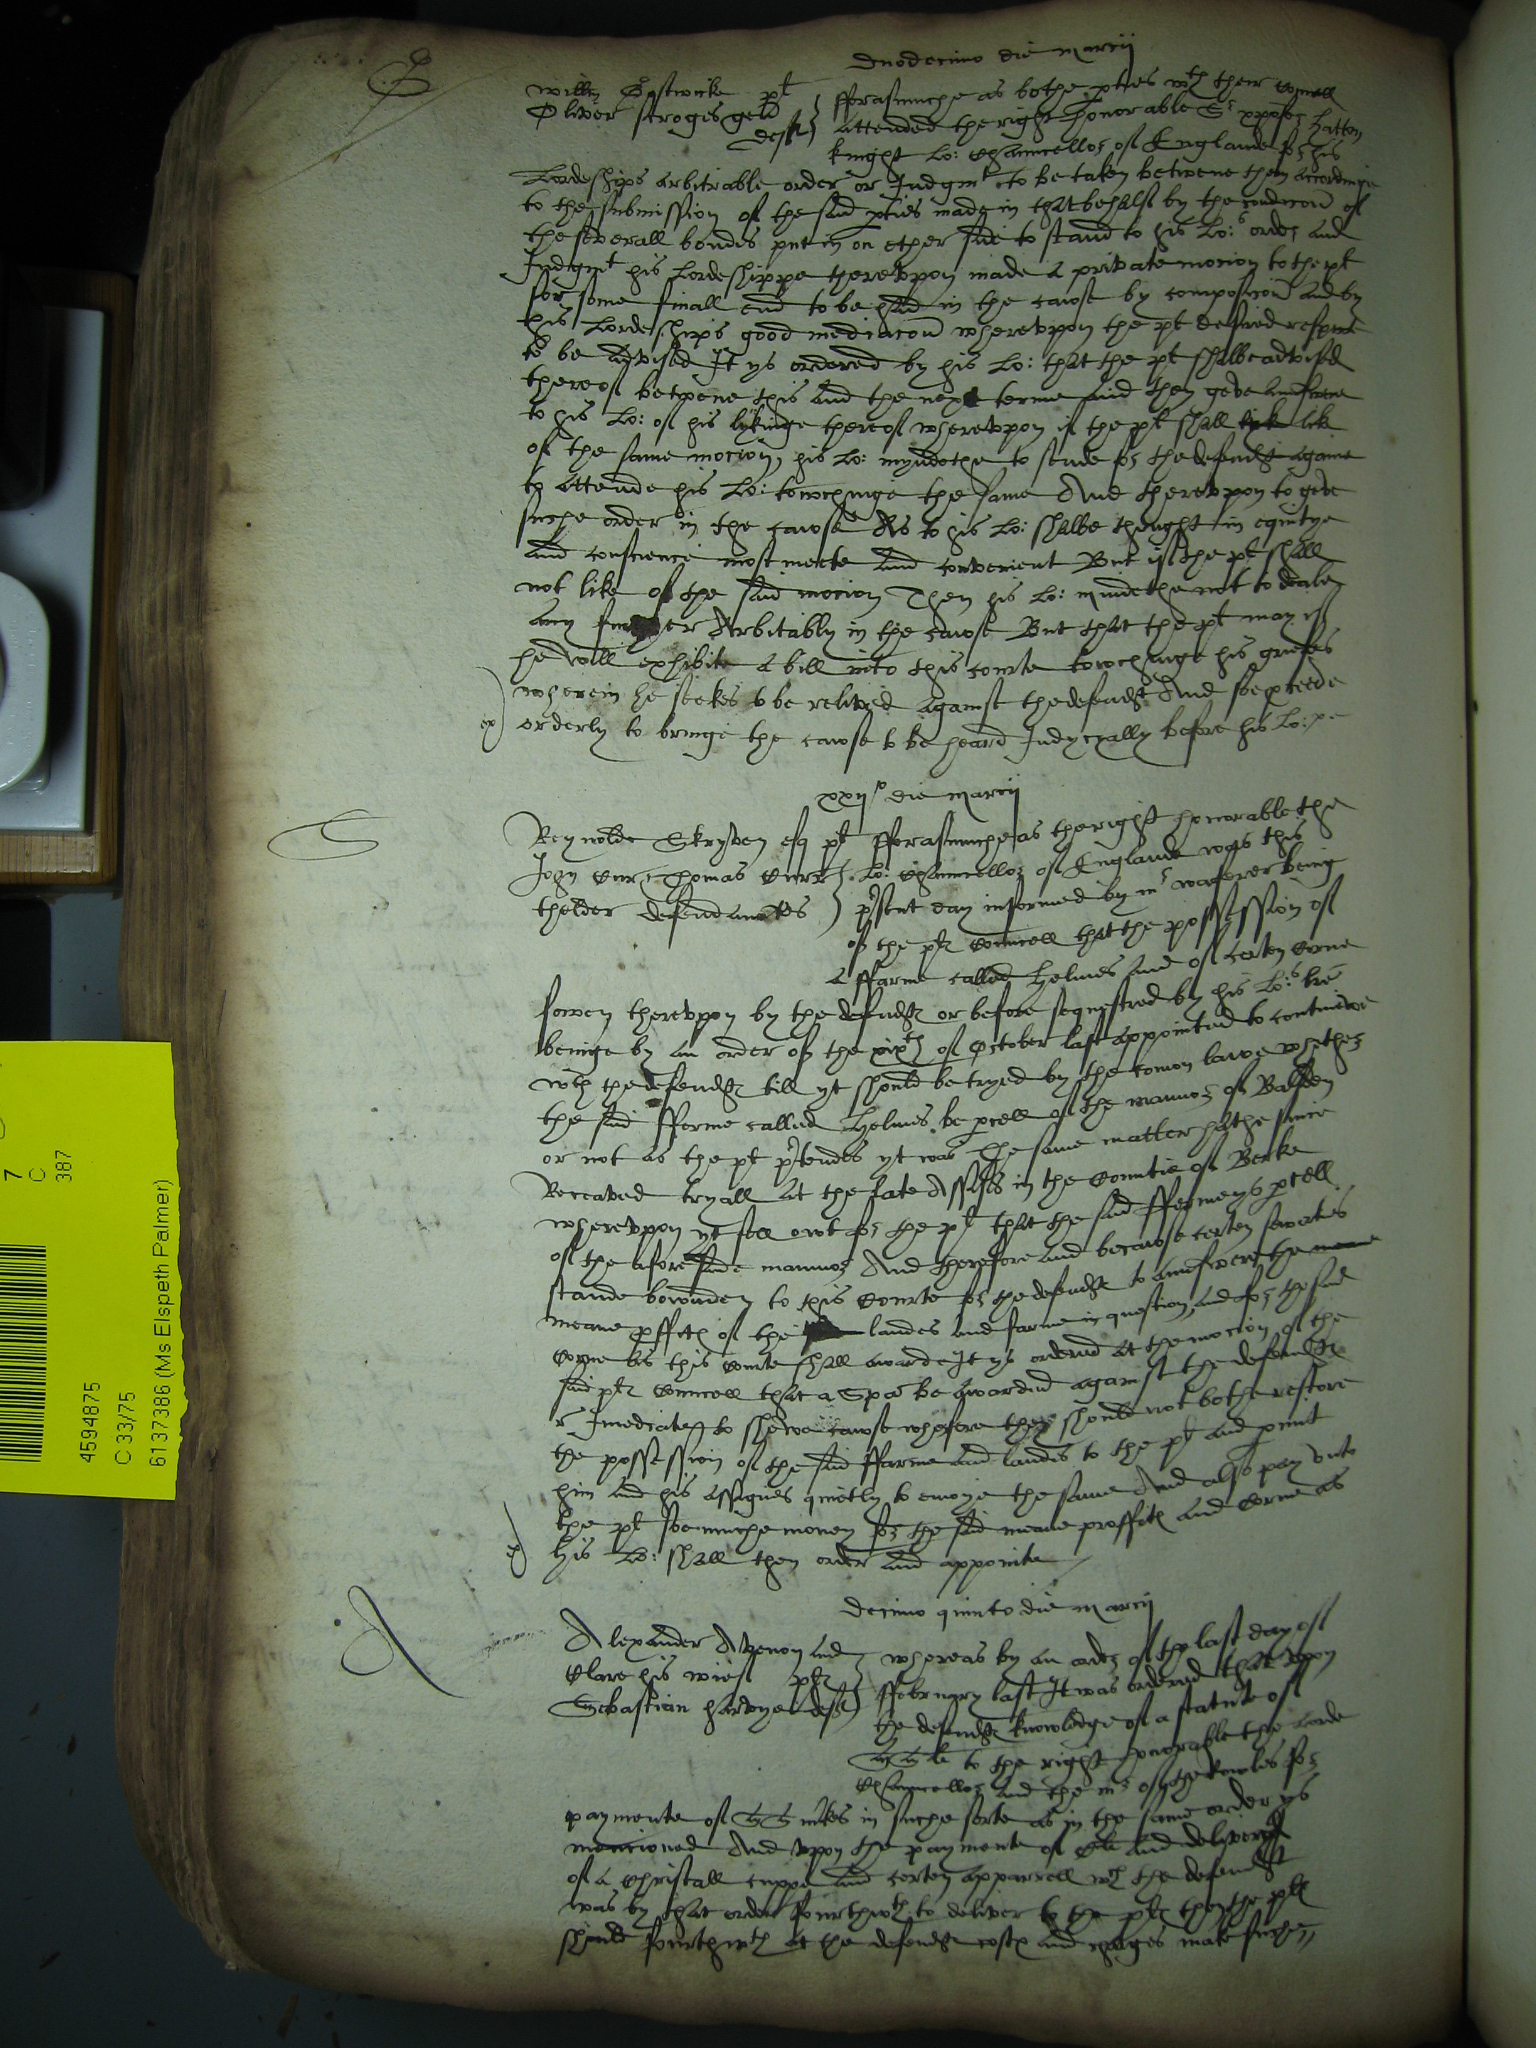 duodecimo die marcij
Willm Ostwicke plt
Oliver stroges gen deft
fforasmuche as bothe pties wth their councell
attended the right honorable Sr xpofer Hatton
knight Lo: Chauncellor of Englande for his
Lordeships arbitrable order or Judgmt to be taken betwene them accordinge
to the submission of the said pties made in that behalf by the condicon of
the severall bondes put in on ether side to stand to his Lo:s order and
Judgmt his Lordeshippe therevpon made a private mocion to the plt
for some finall end to be had in the cawse by composicon and by
his Lordeships good mediacon wherevpon the plt desired respite
to be advised It ys ordered by his Lo: that the plt shalbe advised
thereof betwene this and the next terme and then geve answere
to his Lo: of his lykinge thereof wherevpon if the plt shall like
of the same mocion, his Lo: myndethe to sende for the defendt againe
to attende his Lo: towchinge the same And therevpon to geve
suche order in the cawse As to his Lo: shalbe thought in equitye
and conscience most meete and convenient But if the plt shall
not like of the said mocion Then his Lo: mindethe not to deale
any further Arbitably in the cawse But that the plt may if
he will exhibite a bill into this courte towchinge his griefes
wherein he seekes to be relived against the defendt And soe pceede
orderly to bringe the cawse to be heard Judycyally before his Lo:
ex
xxijo die marcij
S
Reynolde Skryven esq plt
John Curr Thomas Curr
thelder defendauntes
fforasmuche as the right honorable the
Lo: Chauncellor of Englande was this
present day informed by mr waferer being
of the plts councell that the possession of
a ffarme called Helmes and of certen corne
sowen therevpon by the defendts or before sequestred by his Lo:s lre
beinge by an order of the xixth of October last appointed to continewe
wth the defendts till yt should be tryed by the comon lawe whether
the said fferme called Helmes be pcell of the mannor of Balden
or not as the plt ptendes yt was The same matter hathe since
Receaved tryall at the late Assises in the Countie of Berke
wherevpon yt fell owt for the plt that the said fferme ys pcell
of the aforesaide mannor And therefore and because certen suerties
stande bownden to this Courte for the defendts to answere the
meane pffitts of the landes and farme in question, and for the said
corne as this courte shall awarde It ys ordered at the mocion of the
said plts councell that a Spa be awarded against the defendts
Imediatly to shewe cawse wherefore they should not bothe restore
the possession of the said ffarme and landes to the plt and pmit
him and his assignes quietly to enioye the same And also pay vnto
the plt soe muche money for the said meane proffitts and corne as
his Lo: shall then order and appointe
ex
decimo quinto die marcij
A
Alexander Avenon and
Clare his wief plts
Sebastian Harvye deft
whereas by an order of the last day of
ffebruary last It was ordered that vpon
the defendts knowledge of a statute of
to the right honorable the Lorde
Chauncellor and the mr of the Rowles for
paymente of mkes in suche sorte as in the same order ys
mencioned And vpon the paymente of Cli and delivery
of a Christall cuppe and certen apparrell wch the defendt
was by that order fourthwth to deliver to the plts then the plts
should fourthwth at the defendts costs and charges make suche
7
C
387
4594875
C 33/75
6137386 (Ms Elspeth Palmer)